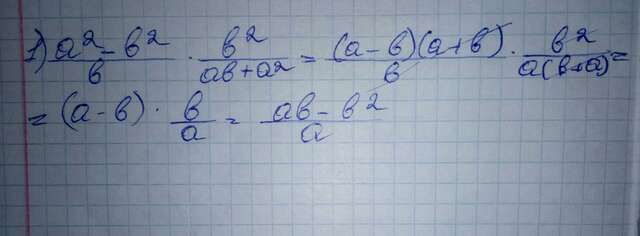 1) (a² - b²)/b · b²/(ab + a²) = (a - b)(a + b)/b · b²/(a(b + a)) =
= (a - b) · b/a = (ab - b²)/a